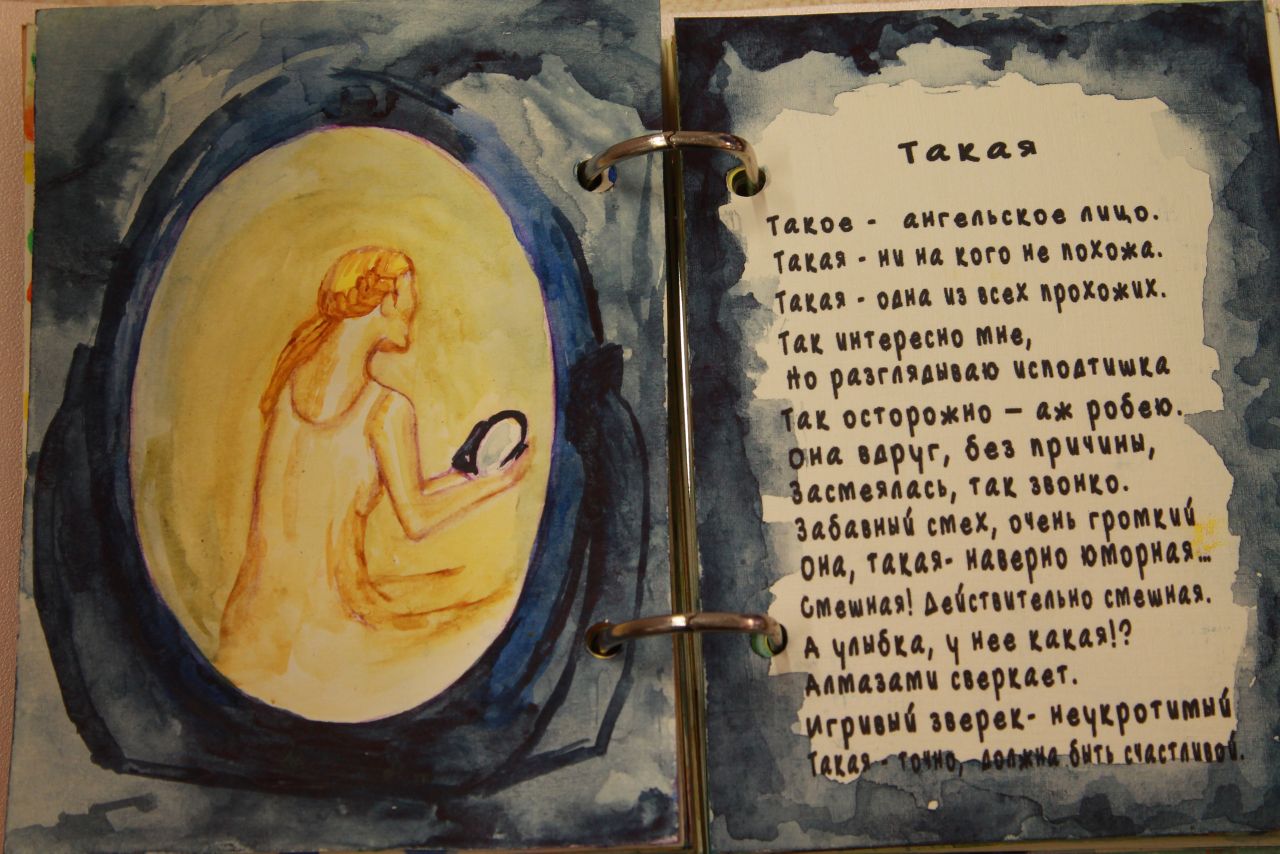 Такая
Такое - ангельское лицо.
Такая - ни на кого не похожа.
Такая - одна из всех прохожих.
Так интересно мне,
Но разглядываю исподтишка
Так осторожно – аж робею.
Она вдруг, без причины,
Засмеялась, так звонко.
Забавный смех, очень громкий
Она, такая- наверно юморная...
Смешная! Действительно смешная.
А улыбка, у нее какая!?
Алмазами сверкает.
Игривый зверек- неукротимый
Такая - точно, должна быть счастливой.